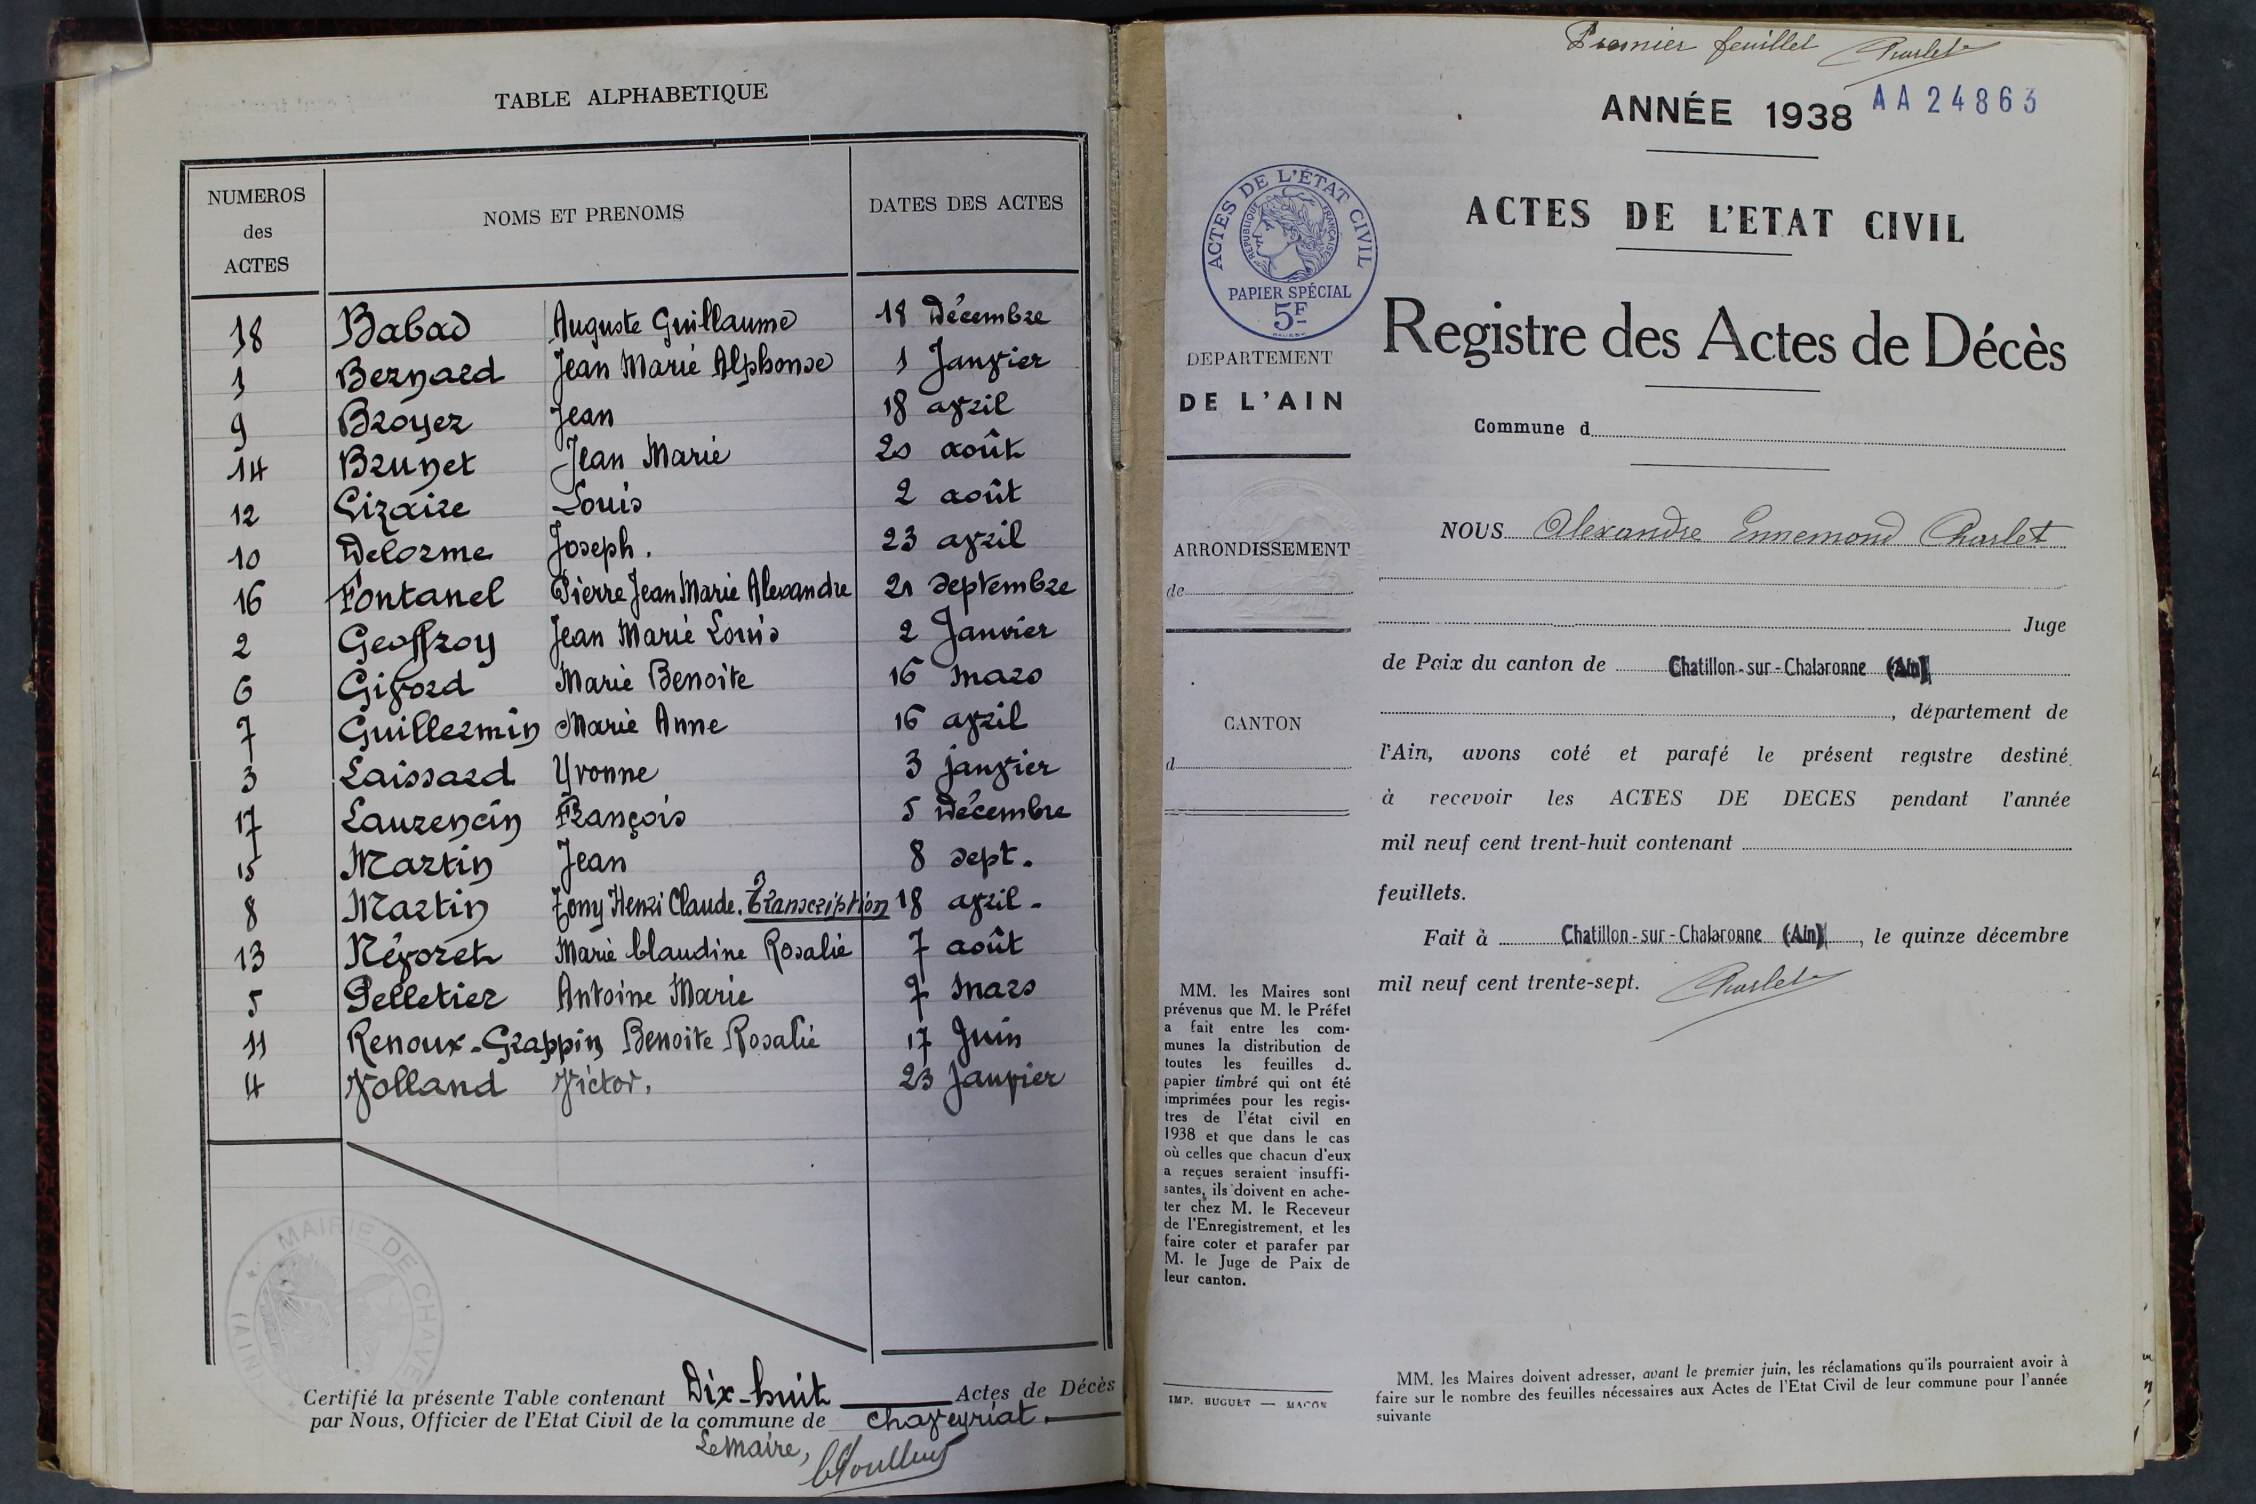 TABLE ALPHABETIQUE
NUMEROS des ACTES | NOMS ET PRENOMS | DATES DES ACTES
18 Babad Auguste Guillaume 18 Décembre
1 Bernard Jean Marie Alphonse 1 Janvier
9 Broyer Jean 18 avril
14 Brunet Jean Marie 20 août
12 Cizaire Louis 2 août
10 Delorme Joseph. 23 avril
16 Fontanel Pierre Jean Marie Alexandre 21 septembre
2 Geoffroy Jean Marie Louis 2 Janvier
6 Givord Marie Benoite 16 mars
7 Guillermin Marie Anne 16 avril
3 Laissard Yvonne 3 janvier
17 Laurencin François 5 Décembre
15 Martin Jean 8 sept.
8 Martin Tony Henri Claude. Transcription 18 avril.
13 Névoret Marie Claudine Rosalie 7 août
5 Pelletier Antoine Marie 7 mars
11 Renoux-Grappin Benoite Rosalie 17 Juin
4 Volland Victor. 23 Janvier
MAIRIE DE CHAVE
(AIN)
Certifié la présente Table contenant Dix-huit Actes de Décès
par Nous, Officier de l'Etat Civil de la commune de Chaveyriat.
Le Maire,
Premier feuillet Charlet
ANNÉE 1938 AA 24863
ACTES DE L'ETAT CIVIL
ACTES DE L'ÉTAT CIVIL
REPUBLIQUE FRANÇAISE
PAPIER SPÉCIAL
5F
Registre des Actes de Décès
DEPARTEMENT
DE L'AIN
ARRONDISSEMENT
de
CANTON
d
MM. les Maires sont
prévenus que M. le Préfet
a fait entre les com-
munes la distribution de
toutes les feuilles d
papier timbré qui ont été
imprimées pour les regis-
tres de l'état civil en
1938 et que dans le cas
où celles que chacun d'eux
a reçues seraient insuffi-
santes, ils doivent en ache-
ter chez M. le Receveur
de l'Enregistrement, et les
faire coter et parafer par
M. le Juge de Paix de
leur canton.
IMP. BUGUET — MACON
Commune d
NOUS Alexandre Ennemond Charlet
Juge
de Paix du canton de Chatillon-sur-Chalaronne (Ain)
, département de
l'Ain, avons coté et parafé le présent registre destiné
à recevoir les ACTES DE DECES pendant l'année
mil neuf cent trent-huit contenant
feuillets.
Fait à Chatillon-sur-Chalaronne (Ain), le quinze décembre
mil neuf cent trente-sept. Charlet
MM. les Maires doivent adresser, avant le premier juin, les réclamations qu'ils pourraient avoir à
faire sur le nombre des feuilles nécessaires aux Actes de l'Etat Civil de leur commune pour l'année
suivante